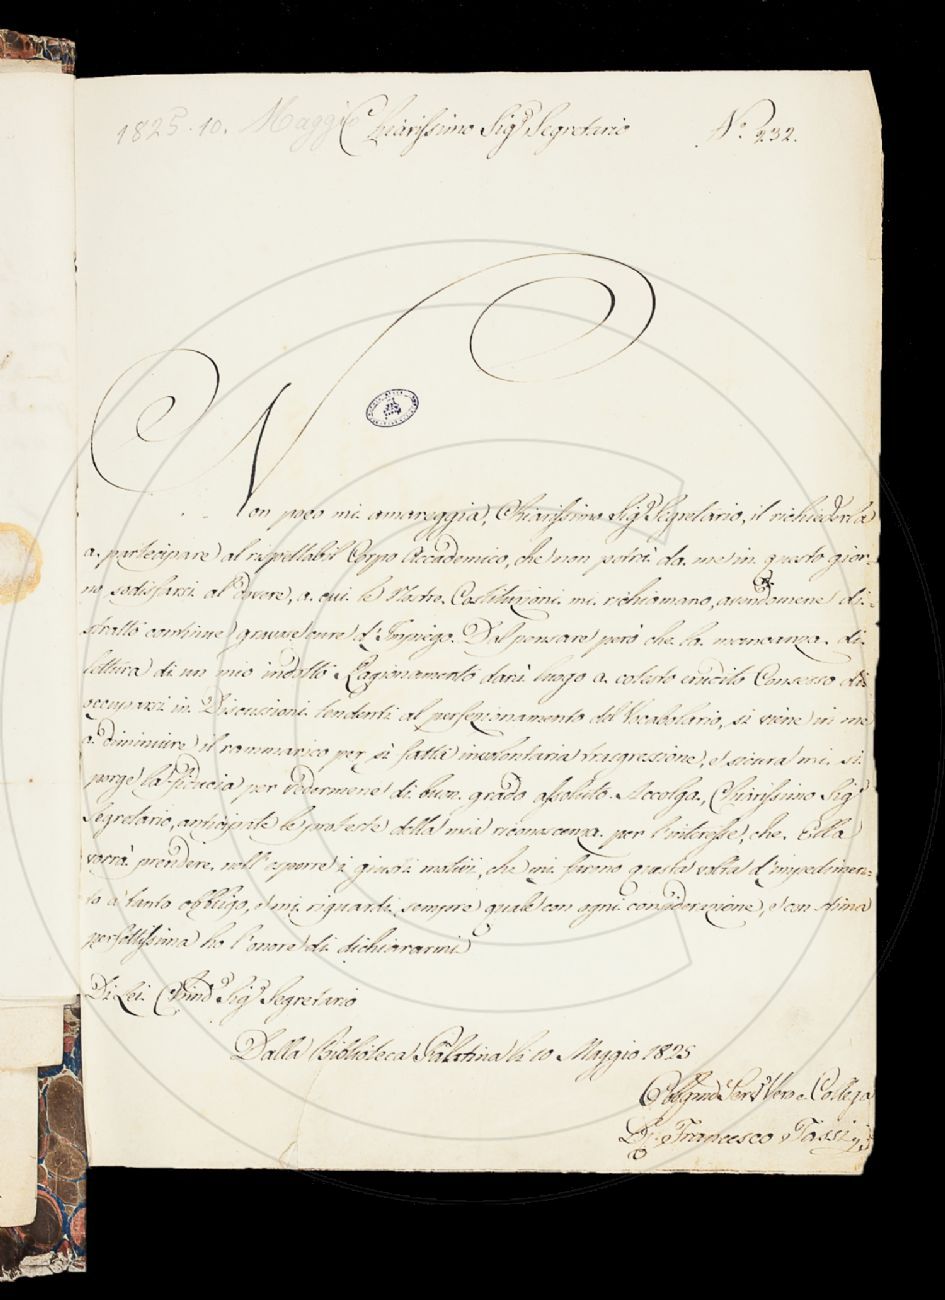 1825. 10. Maggio Chiarissimo Sig.r Segretario N.o 232.
Non poco mi amareggia, Chiarissimo Sig.r Segretario, il richiederla
a partecipare al rispettabil Corpo Accademico, che non potrà da me in questo gior-
no sodisfarsi al dovere, a cui le Nostre Costituzioni mi richiamano, avendomene di-
stratto continue gravose cure d'Impiego. Il pensare però che la mancanza di
lettura di un mio indotto Ragionamento darà luogo a cotesto erudito Consesso di
occuparsi in Discussioni tendenti al perfezionamento del Vocabolario, si viene in me
a diminuire il rammarico per sì fatta involontaria trasgressione, e sicura mi si
porge la fiducia per vedermene di buon grado assoluto. Accolga, Chiarissimo Sig.r
Segretario, anticipate le proteste della mia riconoscenza per l'interesse, che Ella
vorrà prendere nell'esporre i giusti motivi, che mi furono questa volta d'impedimen-
to a tanto obbligo, e mi riguardi sempre quale con ogni considerazione, e con stima
perfettissima ho l'onore di dichiararmi
Di Lei Sig.r Segretario
Dalla Biblioteca Palatina li 10 Maggio 1825
Serv. Vero e Collega
Francesco Tassi